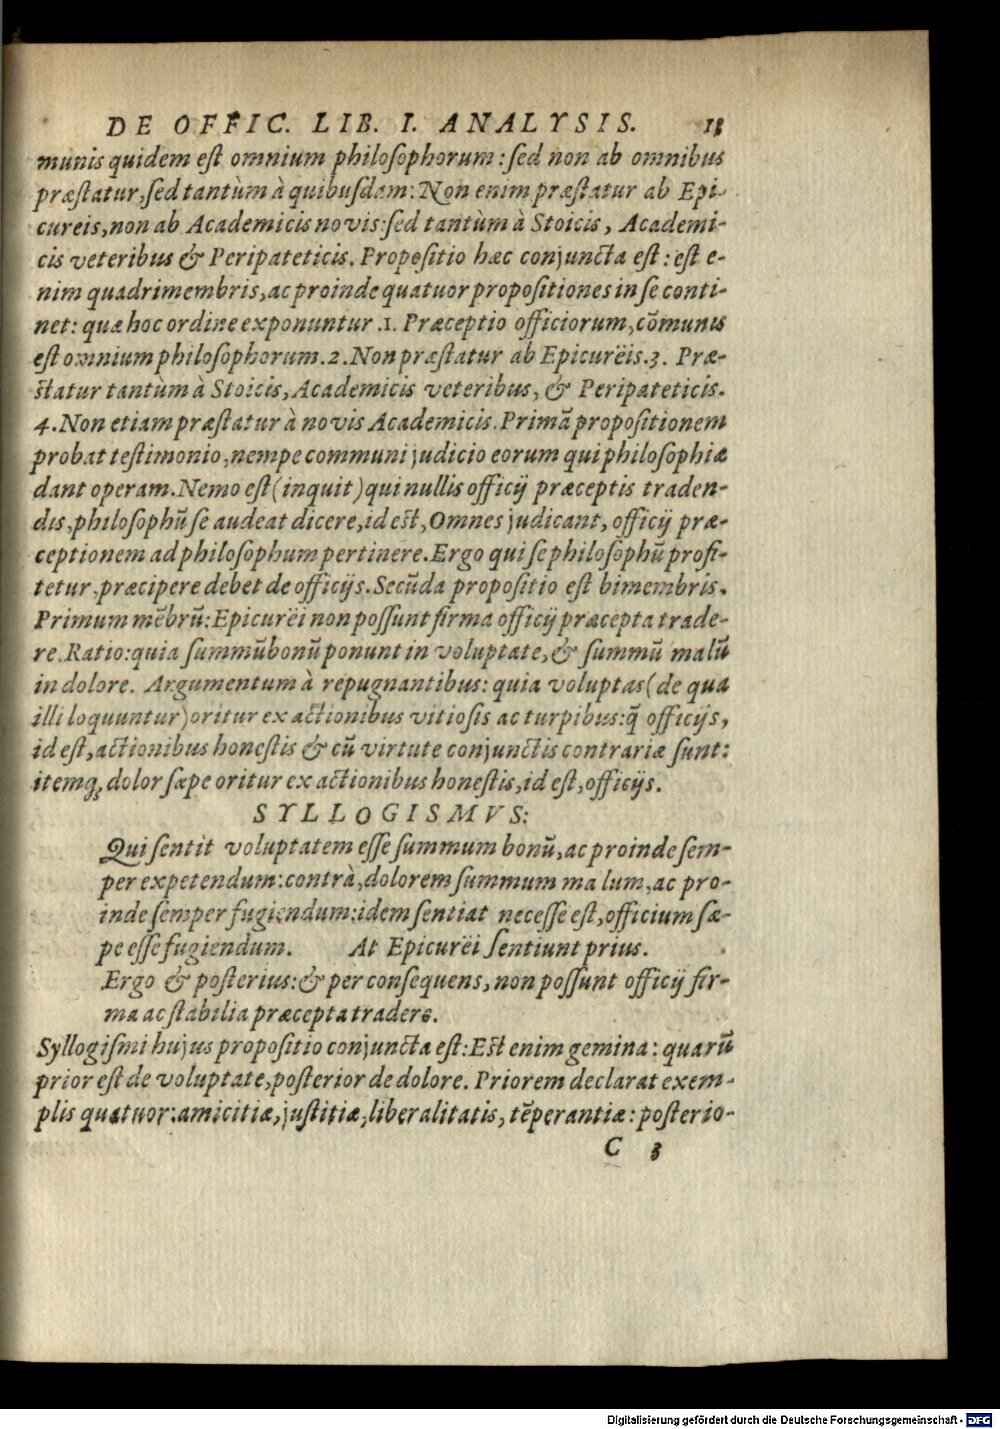 DE OFFIC. LIB. I. ANALYSIS. 18
munis quidem est omnium philosophorum: sed non ab omnibus
præstatur, sed tantùm à quibusdam: Non enim præstatur ab Epi-
cureis, non ab Academicis novis: sed tantùm à Stoicis, Academi-
cis veteribus & Peripateticis. Propositio hæc conjuncta est: est e-
nim quadrimembris, ac proinde quatuor propositiones in se conti-
net: quæ hoc ordine exponuntur .1. Præceptio officiorum, cõmunis
est omnium philosophorum. 2. Non præstatur ab Epicurëis. 3. Præ-
statur tantùm à Stoicis, Academicis veteribus, & Peripateticis.
4. Non etiam præstatur à novis Academicis. Primã propositionem
probat testimonio, nempe communi judicio eorum qui philosophiæ
dant operam. Nemo est (inquit) qui nullis officij præceptis traden-
dis, philosophũ se audeat dicere, id est, Omnes judicant, officij præ-
ceptionem ad philosophum pertinere. Ergo qui se philosophũ profi-
tetur, præcipere debet de officijs. Secũda propositio est bimembris.
Primum mẽbrũ: Epicurëi non possunt firma officij præcepta trade-
re. Ratio: quia summũ bonũ ponunt in voluptate, & summũ malũ
in dolore. Argumentum à repugnantibus: quia voluptas (de qua
illi loquuntur) oritur ex actionibus vitiosis ac turpibus: q̃ officijs,
id est, actionibus honestis & cũ virtute conjunctis contrariæ sunt:
itemq; dolor sæpe oritur ex actionibus honestis, id est, officijs.
SYLLOGISMVS:
Qui sentit voluptatem esse summum bonũ, ac proinde sem-
per expetendum: contrà, dolorem summum ma lum, ac pro-
inde semper fugiendum: idem sentiat necesse est, officium sæ-
pe esse fugiendum. At Epicurëi sentiunt prius.
Ergo & posterius: & per consequens, non possunt officij fir-
ma ac stabilia præcepta tradere.
Syllogismi hujus propositio conjuncta est: Est enim gemina: quarũ
prior est de voluptate, posterior de dolore. Priorem declarat exem-
plis quatuor: amicitiæ, justitiæ, liberalitatis, tẽperantiæ: posterio-
C 3
Digitalisierung gefördert durch die Deutsche Forschungsgemeinschaft - DFG